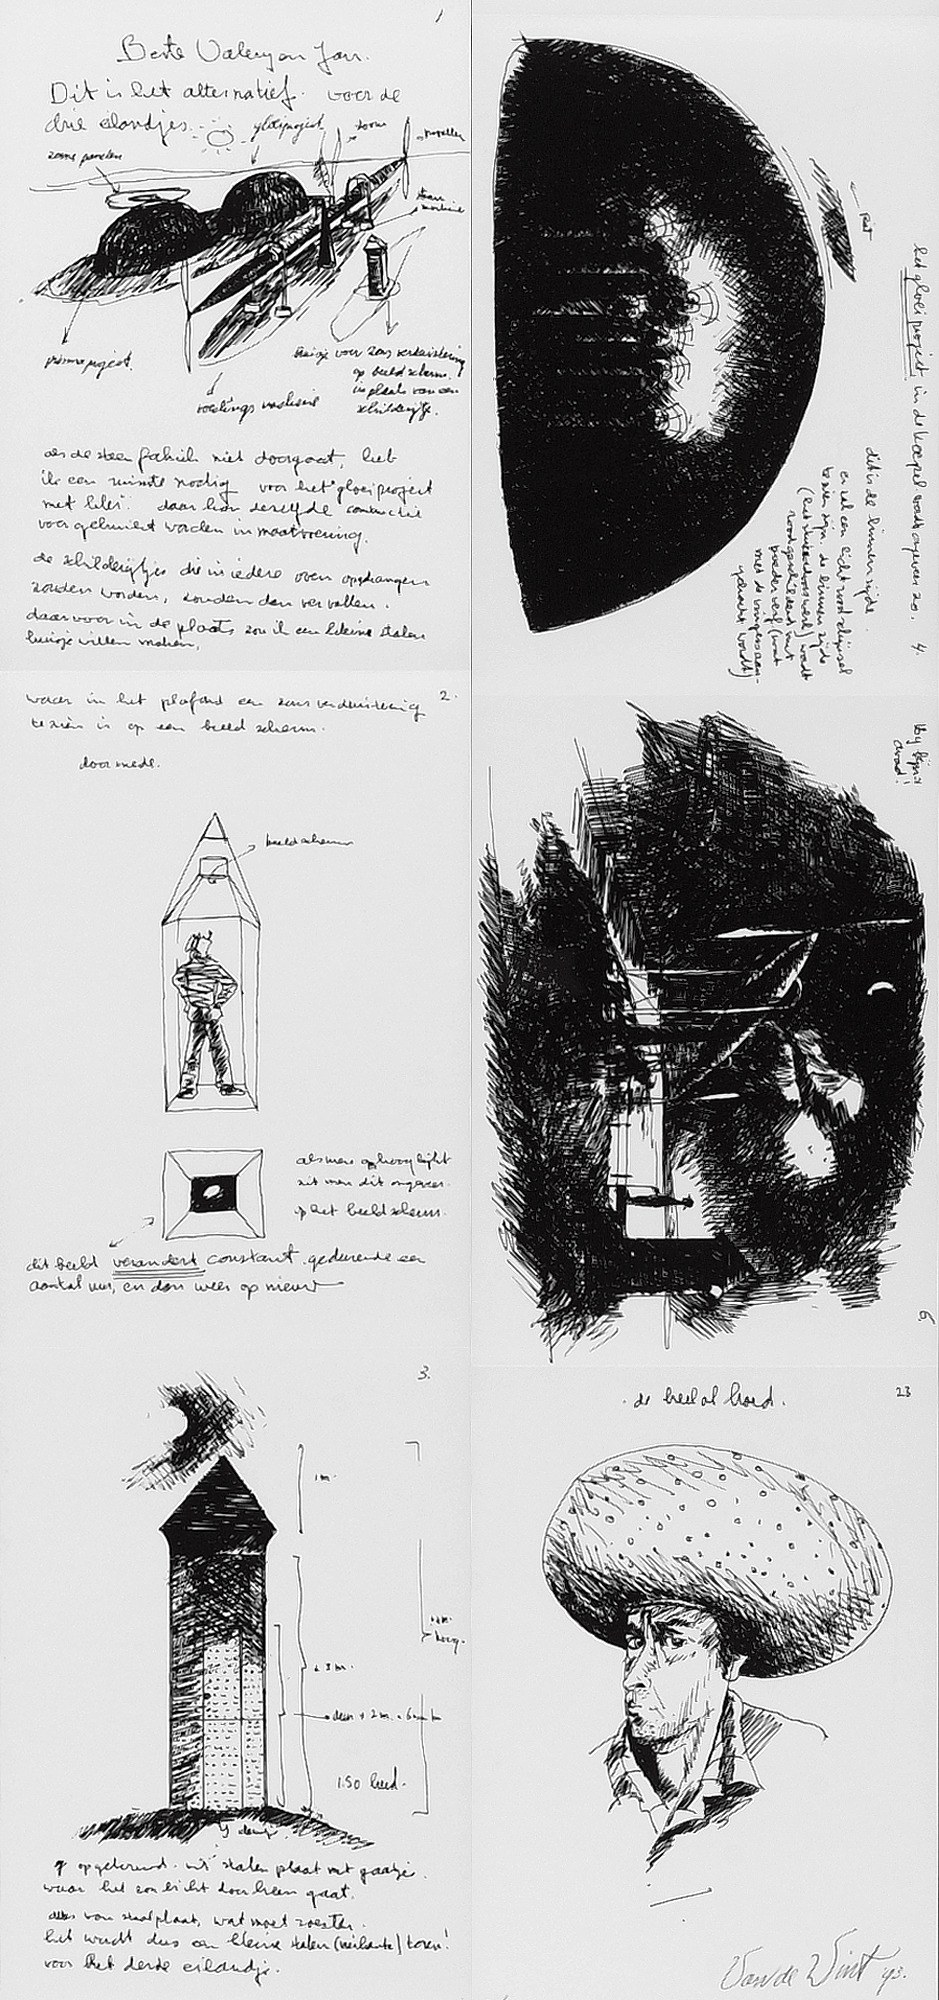 1
Beste Valery en Jan.
Dit is het alternatief. voor de
drie eilandjes.
gloeiproject
zonne panelen
propeller
prisma project.
voedings machine
huisje voor zons verduistering
op beeldscherm.
in plaats van een
schilderijtje.
als de steen fabriek niet doorgaat, heb
ik een ruimte nodig voor het "gloeiproject
met klei". daar kan dezelfde constructie
voor gebruikt worden in maatvoering.
de schilderijtjes die in iedere oven opgehangen
zouden worden, zouden dan vervallen.
daarvoor in de plaats zou ik een kleine stalen
huisje willen maken,
2.
waar in het plafond een zons verduistering
te zien is op een beeld scherm.
doorsnede.
beeldscherm
als men omhoog kijkt
ziet men dit ongeveer.
op het beeldscherm.
dit beeld verandert constant gedurende een
aantal uur, en dan weer op nieuw
3.
1 m.
± 3 m.
hoog.
1.50 breed.
opgebouwd uit stalen plaat met gaatjes.
waar het zonlicht doorheen gaat.
alles van staalplaat, wat moet roesten.
het wordt dus een kleine stalen (vierkante) toren!
voor het derde eilandje.
4.
het gloeiproject in de koepel wordt ongeveer zo.
dit is de binnenzijde.
er zal een licht rood schijnsel
te zien zijn. de binnen zijde
wordt geschilderd met
poeder verf (wat
met de vingers aan-
gebracht wordt)
bij lijn
avond!
6.
23
de heelal hoed.
Van de Wint '93.